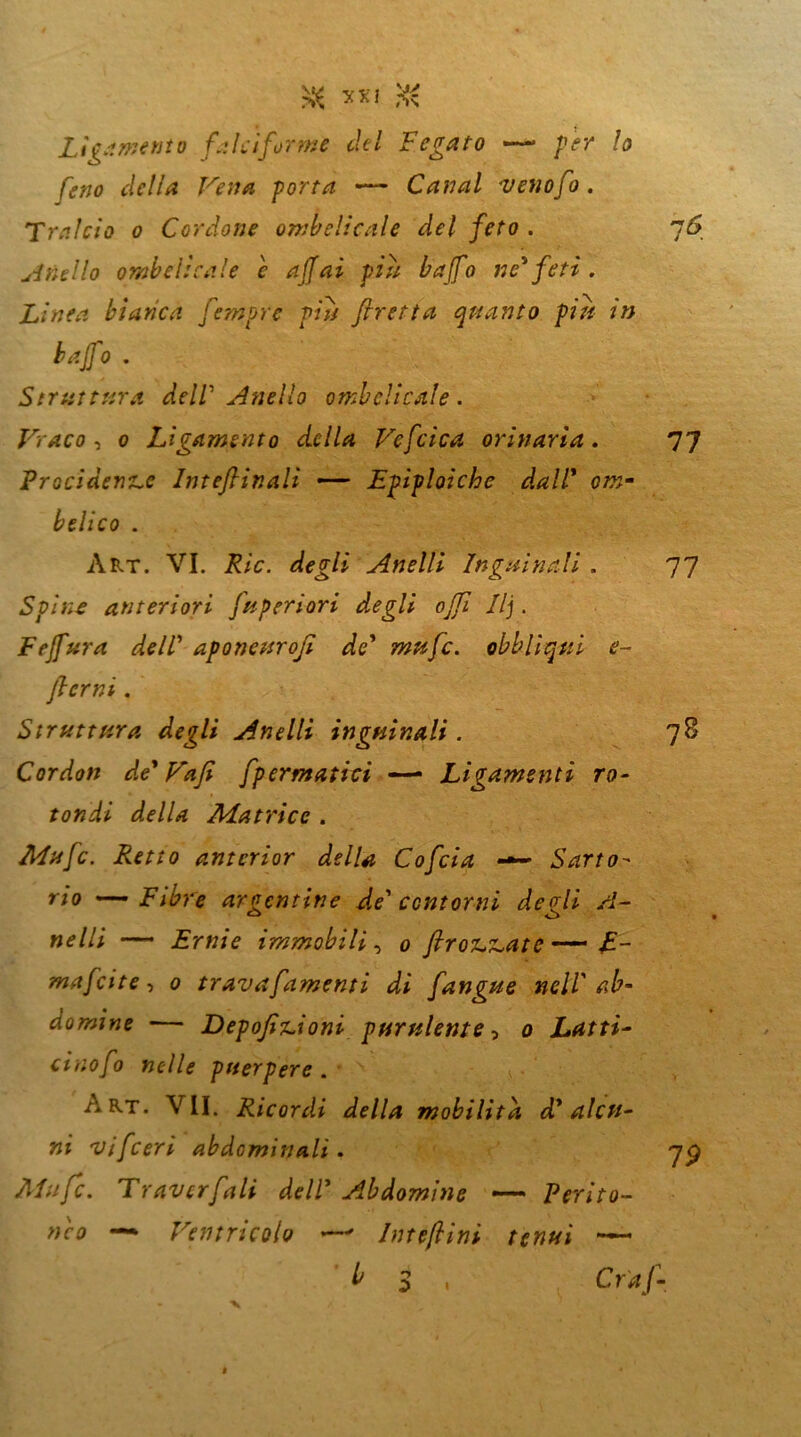 ※ XXI ※
Ligamento falciforme del Fegato — per lo
ſeno della Vena porta — Canal venoſo.
Tralcio o Cordone ombelicale del feto. 76
Anello ombelicale è aſſai più baſſo ne' feti.
Linea bianca ſempre più ſtretta quanto più in
baſſo.
Struttura dell' Anello ombelicale.
Vraco, o Ligamento della Veſcica orinaria. 77
Procidenze Inteſtinali — Epiploiche dall' om-
belico.
ART. VI. Ric. degli Anelli Inguinali. 77
Spine anteriori ſuperiori degli oſſi Ilj.
Feſſura dell' aponeuroſi de' muſc. obbliqui e-
ſterni.
Struttura degli Anelli inguinali. 78
Cordon de' Vaſi ſpermatici — Ligamenti ro-
tondi della Matrice.
Muſc. Retto anterior della Coſcia — Sarto-
rio — Fibre argentine de' contorni degli A-
nelli — Ernie immobili, o ſtrozzate — E-
maſcite, o travaſamenti di ſangue nell' ab-
domine — Depoſizioni purulente, o Latti-
cinoſo nelle puerpere.
ART. VII. Ricordi della mobilità d' alcu-
ni viſceri abdominali. 79
Muſc. Traverſali dell' Abdomine — Perito-
nèo — Ventricolo — Inteſtini tenui —
b 3 Craſ-